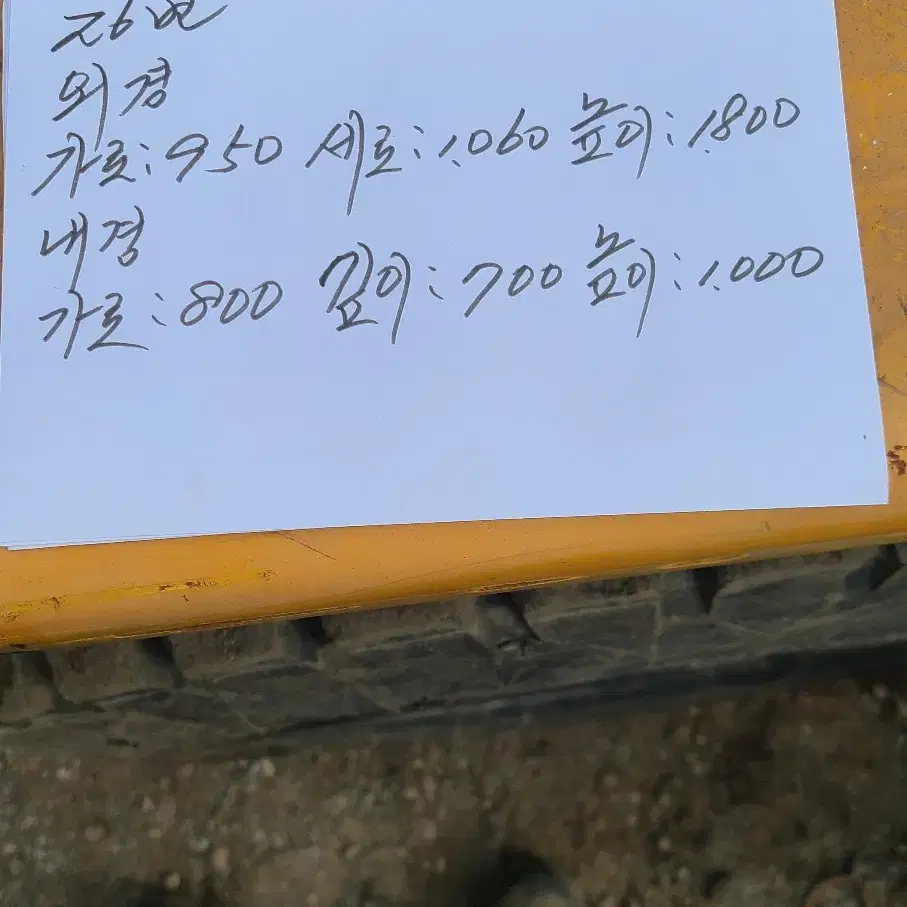 외경
가로:950 세로:1.060 높이:1.800
내경
가로:800 깊이:700 높이:1.000